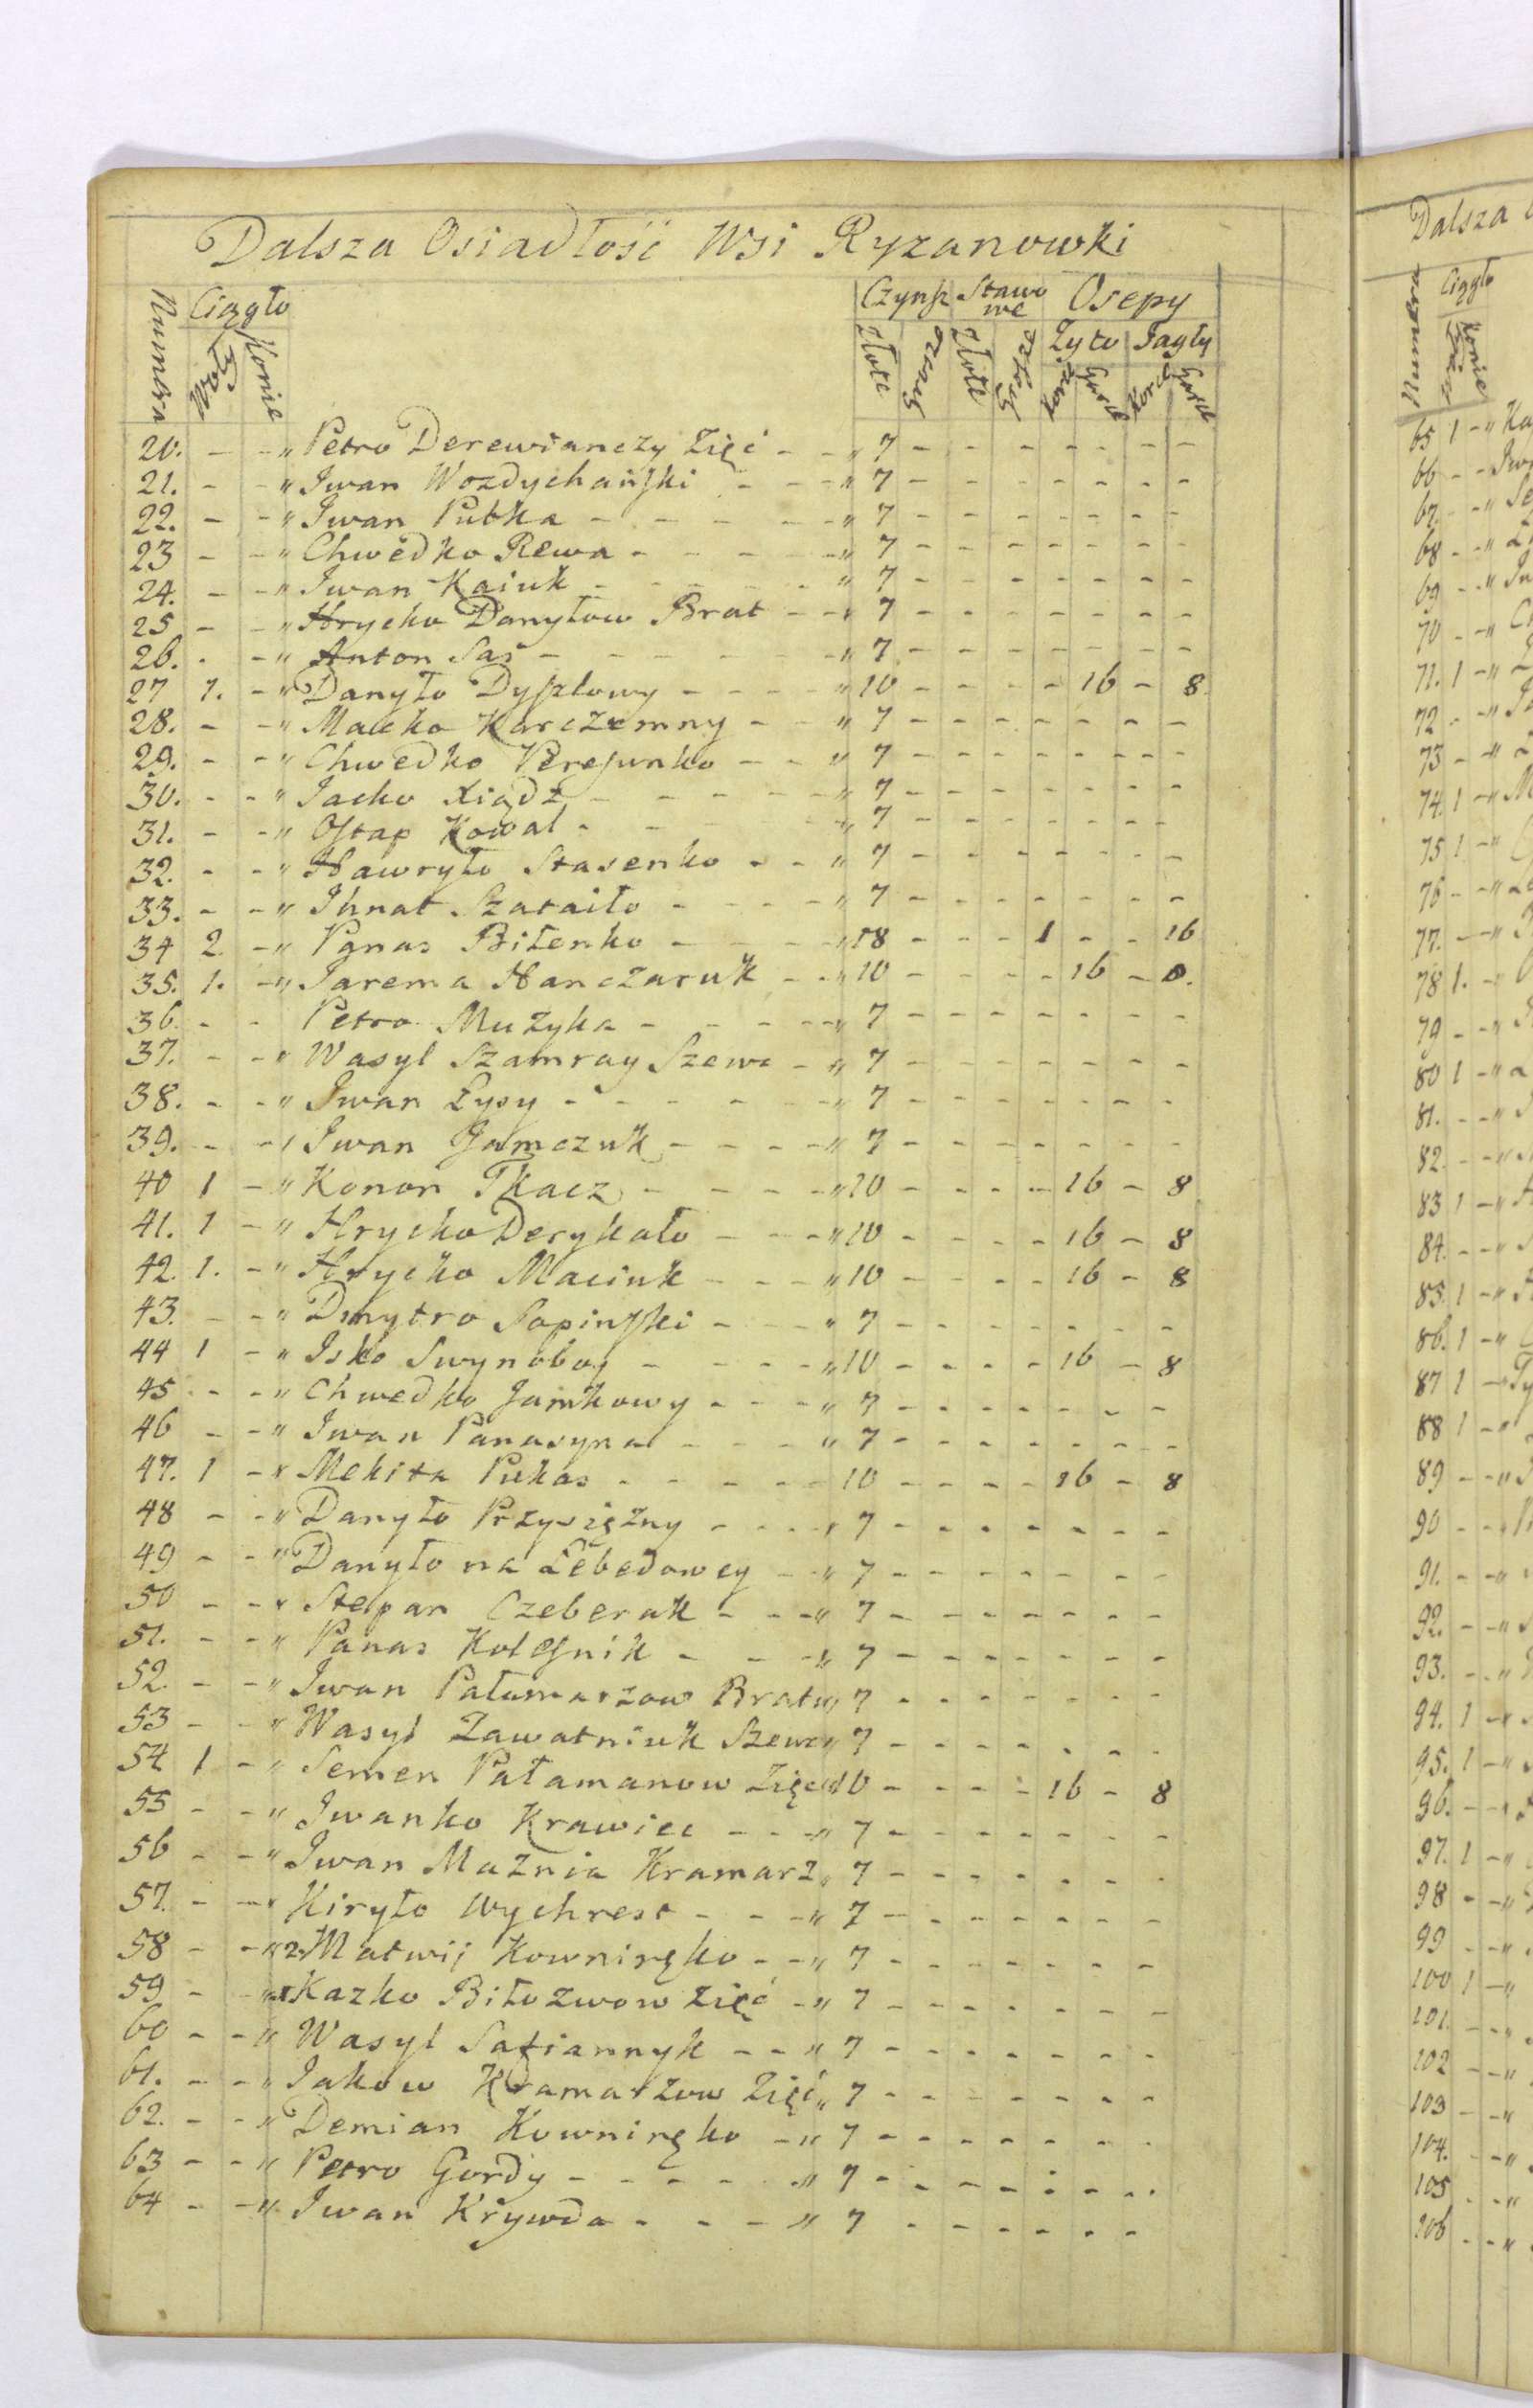 Dalsza Osiadłość Wsi Ryzanowki
Numera Ciągło Konie Czynsz Stawowe Osepy
Złote Grosze Złote Grosze Żyto Jagły
Korce Garce Korce Garce
20. - - " Petro Derewianczy Zięć - - " 7 - - - - - - -
21. - - " Iwan Wozdychański - - - " 7 - - - - - - -
22. - - " Iwan Pubka - - - - - " 7 - - - - - - -
23 - - " Chwedko Rewa - - - - - " 7 - - - - - - -
24. - - " Iwan Kaiuk - - - - - " 7 - - - - - - -
25 - - " Hrycko Danyłow Brat - - " 7 - - - - - - -
26. - - " Anton Sas - - - - - " 7 - - - - - - -
27 1. - " Danyło Dyszlowy - - - - " 10 - - - - 16 - 8.
28. - - " Macko Karczemny - - " 7 - - - - - - -
29. - - " Chwedko Peresunko - - " 7 - - - - - - -
30. - - " Jacko Xiądz - - - - - " 7 - - - - - - -
31. - - " Ostap Kowal - - - - " 7 - - - - - - -
32. - - " Hawryło Stasenko - - " 7 - - - - - - -
33. - - " Ihnat Szataiło - - - - " 7 - - - - - - -
34 2. - " Panas Biłenko - - - - " 18 - - - 1 - - 16
35. 1. - " Jarema Hanczaruk - - " 10 - - - - 16 - 8.
36. - - Petro Muzyka - - - - - " 7 - - - - - - -
37. - - " Wasyl Szamray Szewc - " 7 - - - - - - -
38. - - " Iwan Łysy - - - - - - " 7 - - - - - - -
39. - - " Iwan Jamczuk - - - - " 7 - - - - - - -
40 1 - " Konon Tkacz - - - - " 10 - - - - 16 - 8
41. 1 - " Hrycko Derykało - - - " 10 - - - - 16 - 8
42. 1. - " Hrycko Maciuk - - - " 10 - - - - 16 - 8
43. - - " Dmytro Sopinski - - - " 7 - - - - - - -
44 1 - " Isko Swynoboy - - - - " 10 - - - - 16 - 8
45 - - " Chwedko Jamkowy - - - " 7 - - - - - - -
46 - - " Iwan Panasyna - - - " 7 - - - - - - -
47. 1 - " Mekita Pukas - - - - - 10 - - - - 16 - 8
48 - - " Danyło Przysiężny - - - " 7 - - - - - - -
49 - - " Danyło na Lebedowey - - " 7 - - - - - - -
50 - - " Stepan Czeberak - - - " 7 - - - - - - -
51. - - " Panas Kolesnik - - - " 7 - - - - - - -
52. - - " Iwan Pałamarzow Brat " 7 - - - - - - -
53 - - " Wasyl Zawatniuk Szewc " 7 - - - - - - -
54 1 - " Semen Pałamanow Zięć " 10 - - - - 16 - 8
55 - - " Iwanko Krawiec - - - " 7 - - - - - - -
56 - - " Iwan Maznia Kramarz " 7 - - - - - - -
57. - - " Kiryło Wychrest - - - " 7 - - - - - - -
58 - - " 2 Matwij Kowniręko - - " 7 - - - - - - -
59 - - " Kazko Biłozwow Zięć - " 7 - - - - - - -
60 - - " Wasyl Safiannyk - - " 7 - - - - - - -
61. - - " Jakow Kramarzow Zięć " 7 - - - - - - -
62. - - " Demian Kowniręko - " 7 - - - - - - -
63 - - " Petro Gordy - - - - - " 7 - - - - - - -
64 - - " Iwan Krywda - - - - " 7 - - - - - -
Dalsza
Numera Ciągło Konie
65 1 - "
66 - -
67. - "
68 - - "
69 - - "
70 - - "
71. 1 - "
72 - - "
73 - - "
74. 1 - "
75 1 - "
76 - - "
77. - - "
78 1. -
79 - - "
80 1 - "
81. - - "
82. - - "
83 1 - "
84. - - "
85. 1 - "
86. 1 - "
87 1 -
88 1 - "
89 - - "
90 - -
91. - - "
92. - - "
93. - - "
94. 1 - "
95. 1 - "
96. - - "
97. 1 - "
98 - - "
99 - - "
100 1 - "
101. - - "
102 - - "
103 - - "
104. - - "
105 - - "
106 - - "